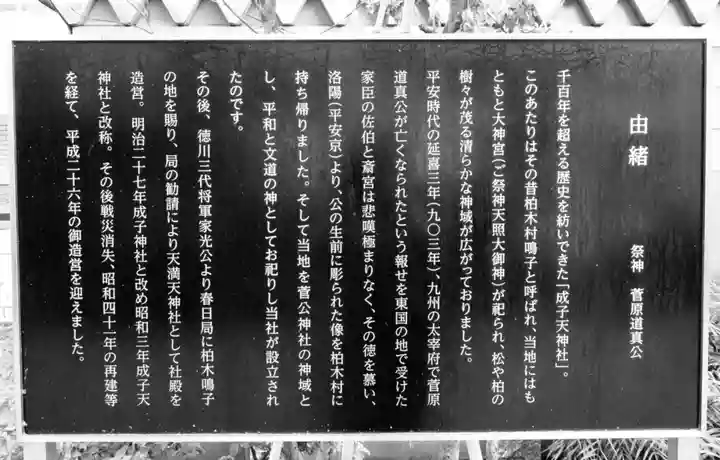 由緒
祭神　菅原道真公
千百年を超える歴史を紡いできた「成子天神社」。
このあたりはその昔柏木村鳴子と呼ばれ、当地にはも
ともと大神宮(ご祭神天照大御神)が祀られ、松や柏の
樹々が茂る清らかな神域が広がっておりました。
平安時代の延喜三年(九〇三年)、九州の太宰府で菅原
道真公が亡くなられたという報せを東国の地で受けた
家臣の佐伯と斎宮は悲嘆極まりなく、その徳を慕い、
洛陽(平安京)より、公の生前に彫られた像を柏木村に
持ち帰りました。そして当地を菅公神社の神域と
し、平和と文道の神としてお祀りし当社が設立され
たのです。
その後、徳川三代将軍家光公より春日局に柏木鳴子
の地を賜り、局の勧請により天満天神社として社殿を
造営。明治二十七年成子神社と改め昭和三年成子天
神社と改称。その後戦災消失、昭和四十一年の再建等
を経て、平成二十六年の御造営を迎えました。